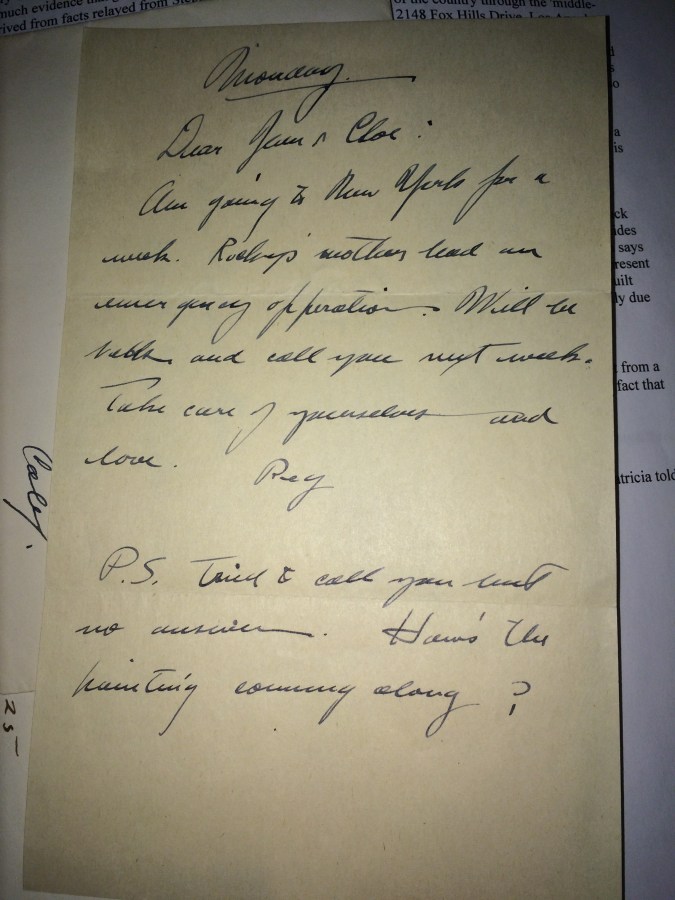 much evidence tha
rived from facts relayed from Ste
of the country through the middle-
2148 Fox Hills Drive, Los Angeles
Monday.
Dear & Cloe:
Am going to New York for a
week. mother had an
emergency opperation. Will be
back and call you next week.
Take care of yourselves and
love. Peg
P.S. Tried to call you but
no answer. How's the
painting comming along?
Calif.
25
a
is
ck
ides
says
resent
uilt
ly due
from a
fact that
tricia told